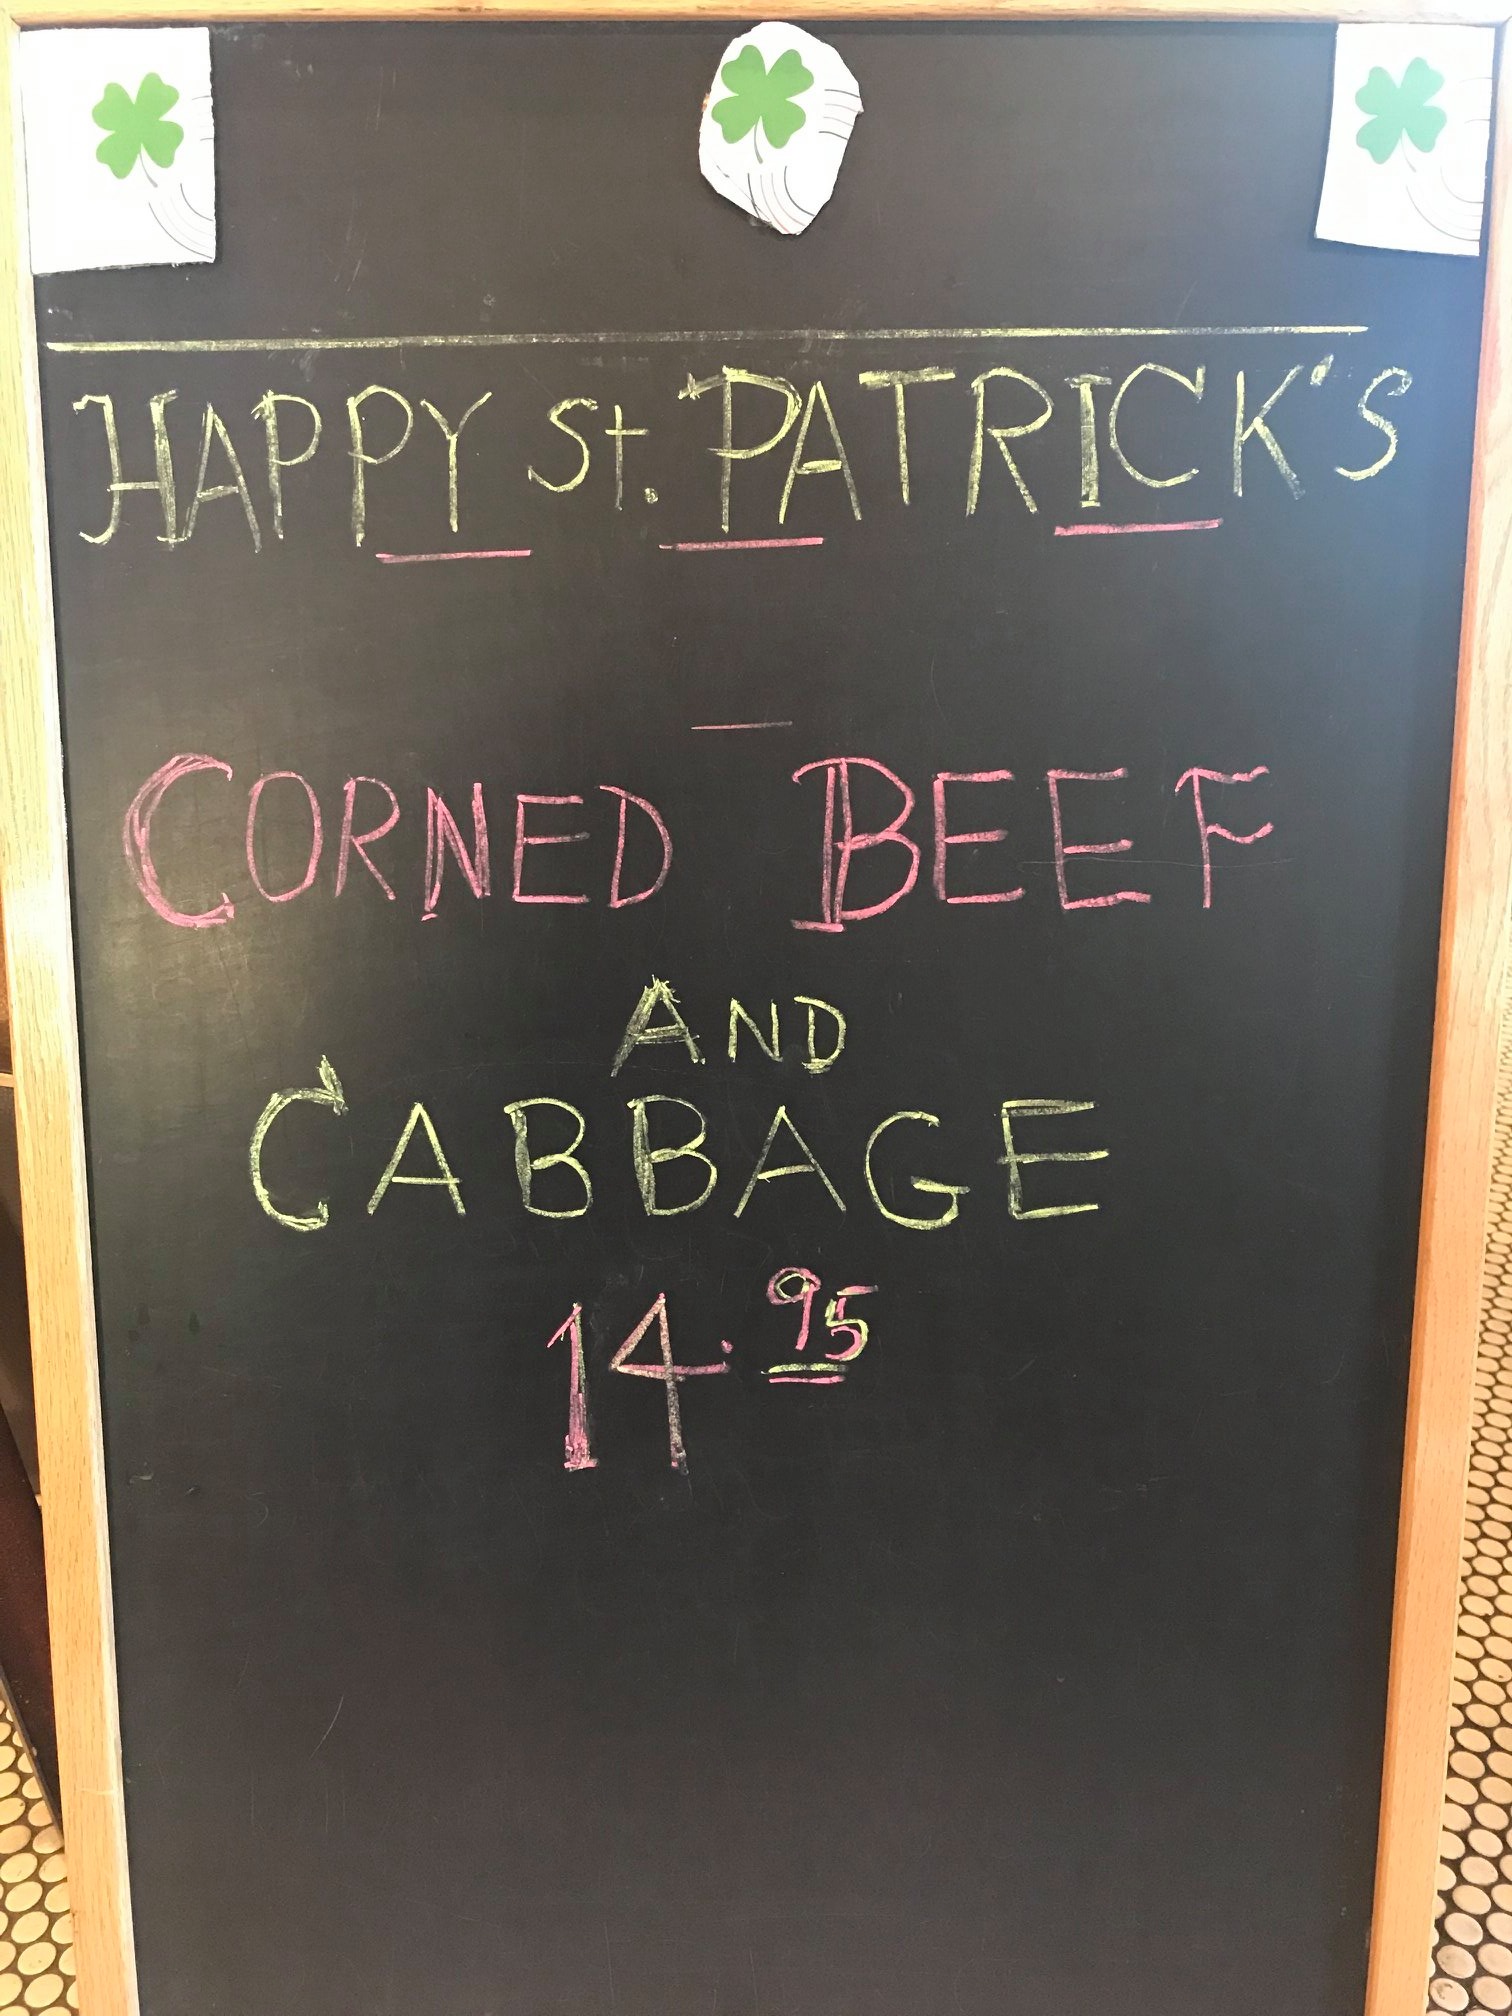 HAPPY St. PATRICK'S
CORNED BEEF
AND
CABBAGE
14.95